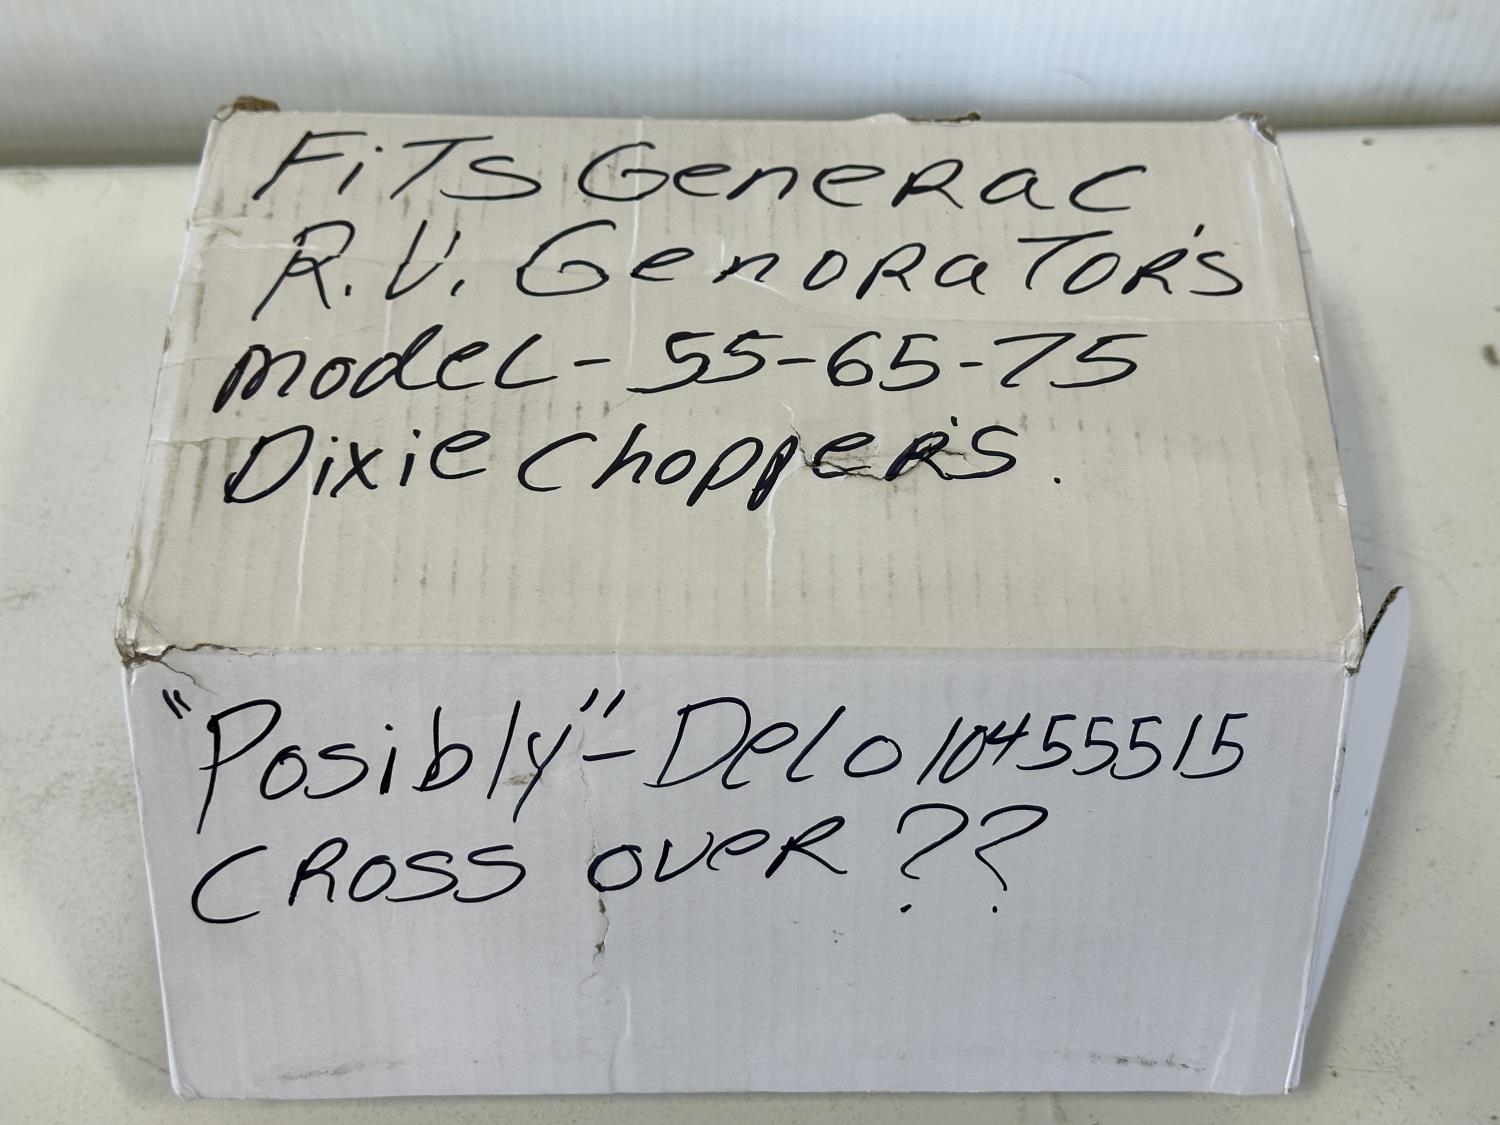 FiTs Generac
R.V. GenoraTor's
model- 55-65-75
Dixie Chopper's.
"Posibly"- Delo 10455515
Cross over ??